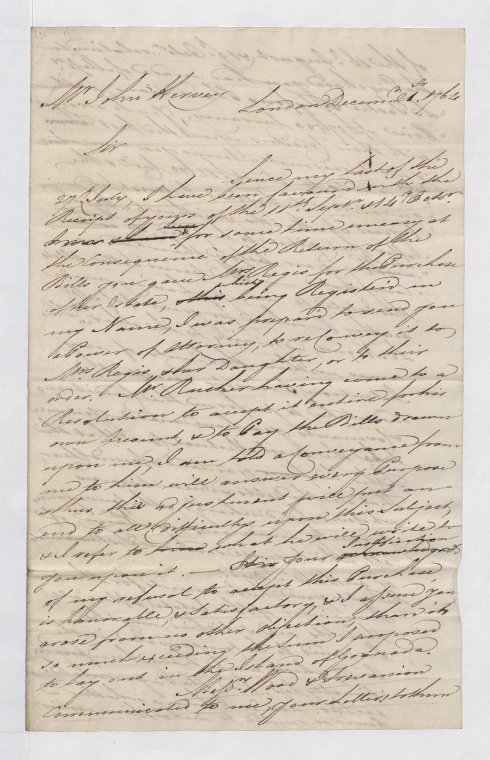 Mr. John Harvey London Decemr. 21st. 1764
Sir
Since my last of the
27th July, I have been favoured with the
Receipt of yours of the 11th. Sept. & 14th. Octr.
I was for some time uneasy at
the Consequence of the Return of the
Bills you gave Mrs. Regis for the Purchase
of her Estate, this being Registerd in
my Name, I was prepar'd to send you
a Power of Attorney, to re Convey it to
Mrs. Regis, & her Daughter, or to their
order. Mr. Rucker having come to a
Resolution to accept it entire for his
own Account, & to Pay the Bills drawn
upon me, I am told a Conveyance from
me to him will answer every Purpose
thus this adjustment price put an
end to all difficultys upon this Subject,
& I refer to what he will write to
you upon it. — Your Justification
of my refusal to accept this Purchase
is honorable & Satisfactory, & I assure you
arose from no other objection, than its
so much exceeding the sum I proposed
to lay out in the Island of Granada.
Messrs. Wood & Trevanion
Communicated to me, your Letters to them